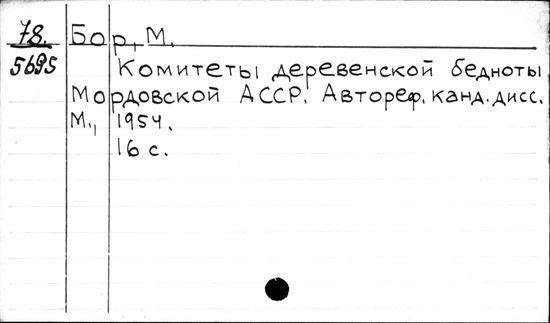 78. Бор, М.
5695 Комитеты деревенской бедноты
Мордовской АССР. Автореф. канд. дисс.
М., 1954.
16 с.